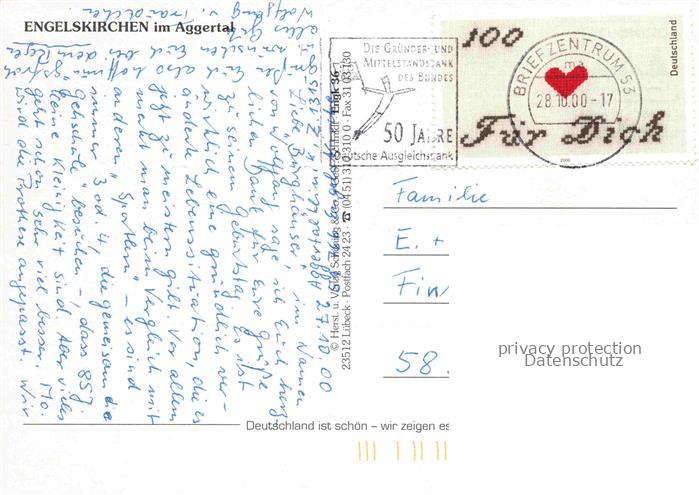 ENGELSKIRCHEN im Aggertal
27.10.00
Liebe Burghäuser, im Namen
von Wolfgang sage ich Euch herz-
lichen Dank für Eure Grüße
zu seinem Geburtstag. Es ist
wirklich eine gründlich ver-
änderte Lebenssituation, die es
jetzt zu meistern gilt. Vor allem
merkt man beim Vergleich mit
anderen "Sportlern" – es sind
immer 3 od. 4, die gemeinsam die
"Gehschule" besuchen –, dass es
keine Kleinigkeit sind. Aber vieles
geht schon sehr viel besser. Mo.
wird die Prothese angepasst. Wir
alles Gute
Wolfgang u. Traudchen
© Herst. u. Verlag Schöning &
23512 Lübeck · Postfach 24 23 · ☎ (04 51) 310 310 0 · Fax 31 03 130
DIE GRÜNDER- UND
MITTELSTANDSBANK
DES BUNDES
50 JAHRE
Deutsche Ausgleichsbank
BRIEFZENTRUM 53
ma
28.10.00-17
100
Deutschland
Für Dich
2000
Familie
E. +
Fin
58
privacy protection
Datenschutz
Deutschland ist schön – wir zeigen es